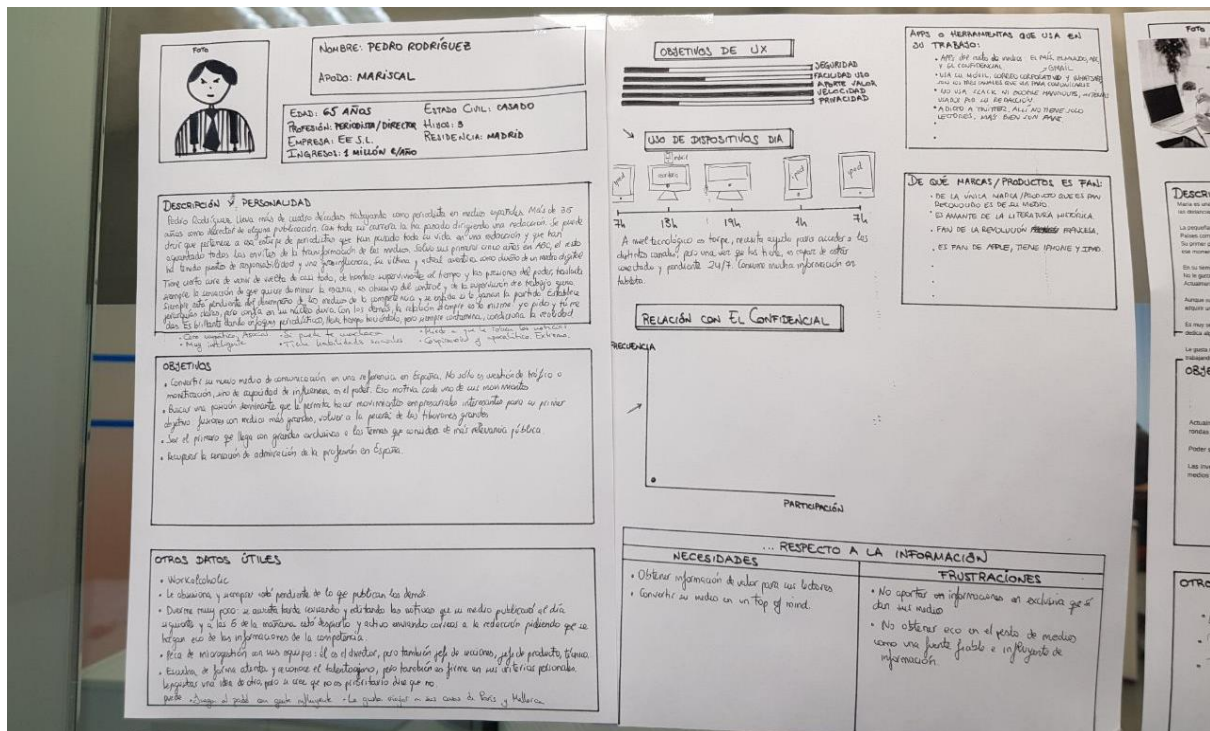 FOTO
NOMBRE: PEDRO RODRÍGUEZ
APODO: MARISCAL
EDAD: 65 AÑOS
ESTADO CIVIL: CASADO
PROFESIÓN: PERIODISTA/DIRECTOR
HIJOS: 3
EMPRESA: EE S.L.
RESIDENCIA: MADRID
INGRESOS: 1 MILLÓN €/AÑO
DESCRIPCIÓN Y PERSONALIDAD
Pedro Rodríguez lleva más de cuatro décadas trabajando como periodista en medios españoles. Más de 35
años como director de alguna publicación. Casi toda su carrera la ha pasado dirigiendo una redacción. Se puede
decir que pertenece a esa estirpe de periodistas que han pasado toda su vida en una redacción y que han
aguantado todos los envites de la transformación de los medios. Salvo sus primeros cinco años en ABC, el resto
ha tenido puestos de responsabilidad y una gran influencia. Su última y actual aventura como dueño de un medio digital
Tiene cierto aire de venir de vuelta de casi todo, de hombre superviviente al tiempo y las presiones del poder, traslada
siempre la sensación de que quiere dominar la escena, es obsesivo del control y de la supervisión del trabajo ajeno
Siempre está pendiente del desempeño de los medios de la competencia y se enfada si le ganan la partida. Establece
jerarquías claras, pero confía en su núcleo duro. Con los demás, la relación siempre es la misma: yo pido y tú me
das. Es brillante dando enfoques periodísticos, lleva tiempo haciéndolo, pero siempre contamina, condiciona la realidad
• Muy inteligente • Tiene habilidades sociales • Conspirador y Extremo.
OBJETIVOS
• Convertir su nuevo medio de comunicación en una referencia en España. No sólo es cuestión de tráfico o
monetización, sino de capacidad de influencia en el poder. Eso motiva cada uno de sus movimientos
• Buscar una posición dominante que le permita hacer movimientos empresariales interesantes para su primer
objetivo: fusiones con medios más grandes, volver a la pecera de los tiburones grandes
• Ser el primero que llega con grandes exclusivas a los temas que considera de más relevancia pública
• Recuperar la sensación de admiración de la profesión en España.
OTROS DATOS ÚTILES
• Workalcoholic
• Le obsesiona y siempre está pendiente de lo que publican los demás
• Duerme muy poco: se acuesta tarde revisando y editando las noticias que su medio publicará el día
siguiente y a las 6 de la mañana está despierto y activo enviando correos a la redacción pidiendo que se
hagan eco de las informaciones de la competencia.
• Peca de microgestión con sus equipos: él es el director, pero también jefe de secciones, jefe de producto, técnico.
• Escucha de forma atenta y reconoce el talento ajeno, pero también es firme en sus criterios personales.
Le gustas una idea de otro, pero si cree que no es prioritario dice que no.
• Juega al pádel con gente influyente • Le gusta viajar a sus casas de París y Mallorca
OBJETIVOS DE UX
SEGURIDAD
FACILIDAD USO
APORTE VALOR
VELOCIDAD
PRIVACIDAD
USO DE DISPOSITIVOS DIA
móvil
ipad
ipad
ipad
7h 13h 19h 1h 7h
A nivel tecnológico es torpe, necesita ayuda para acceder a los
distintos canales, pero una vez que los tiene, es capaz de estar
conectado y pendiente 24/7. Consume mucha información en
tableta.
RELACIÓN CON EL CONFIDENCIAL
FRECUENCIA
PARTICIPACIÓN
... RESPECTO A LA INFORMACIÓN
NECESIDADES
• Obtener información de valor para sus lectores
• Convertir su medio en un top of mind.
FRUSTRACIONES
• No aportar en informaciones en exclusiva que sí
dan sus medios
• No obtener eco en el resto de medios
como una fuente fiable e influyente de
información.
APPS O HERRAMIENTAS QUE USA EN
SU TRABAJO:
• APPS DEL resto de medios: EL PAÍS, EL MUNDO, ABC
Y EL CONFIDENCIAL
GMAIL
• USA SU MÓVIL, CORREO CORPORATIVO Y WHATSAPP
SON LOS PRINCIPALES QUE USA PARA COMUNICARSE
• NO USA SLACK NI GOOGLE HANGOUTS,
USADOS POR SU REDACCIÓN.
• ADICTO A TWITTER. ALLÍ NO TIENE SOLO
LECTORES, MÁS BIEN SON FANS
DE QUÉ MARCAS/PRODUCTOS ES FAN:
• DE LA ÚNICA MARCA/PRODUCTO QUE ES FAN
RECONOCIDO ES DE SU MEDIO.
• ES AMANTE DE LA LITERATURA HISTÓRICA
• FAN DE LA REVOLUCIÓN FRANCESA.
• ES FAN DE APPLE, TIENE IPHONE Y IPAD.
FOTO
DESCRI
OBJE
OTRO